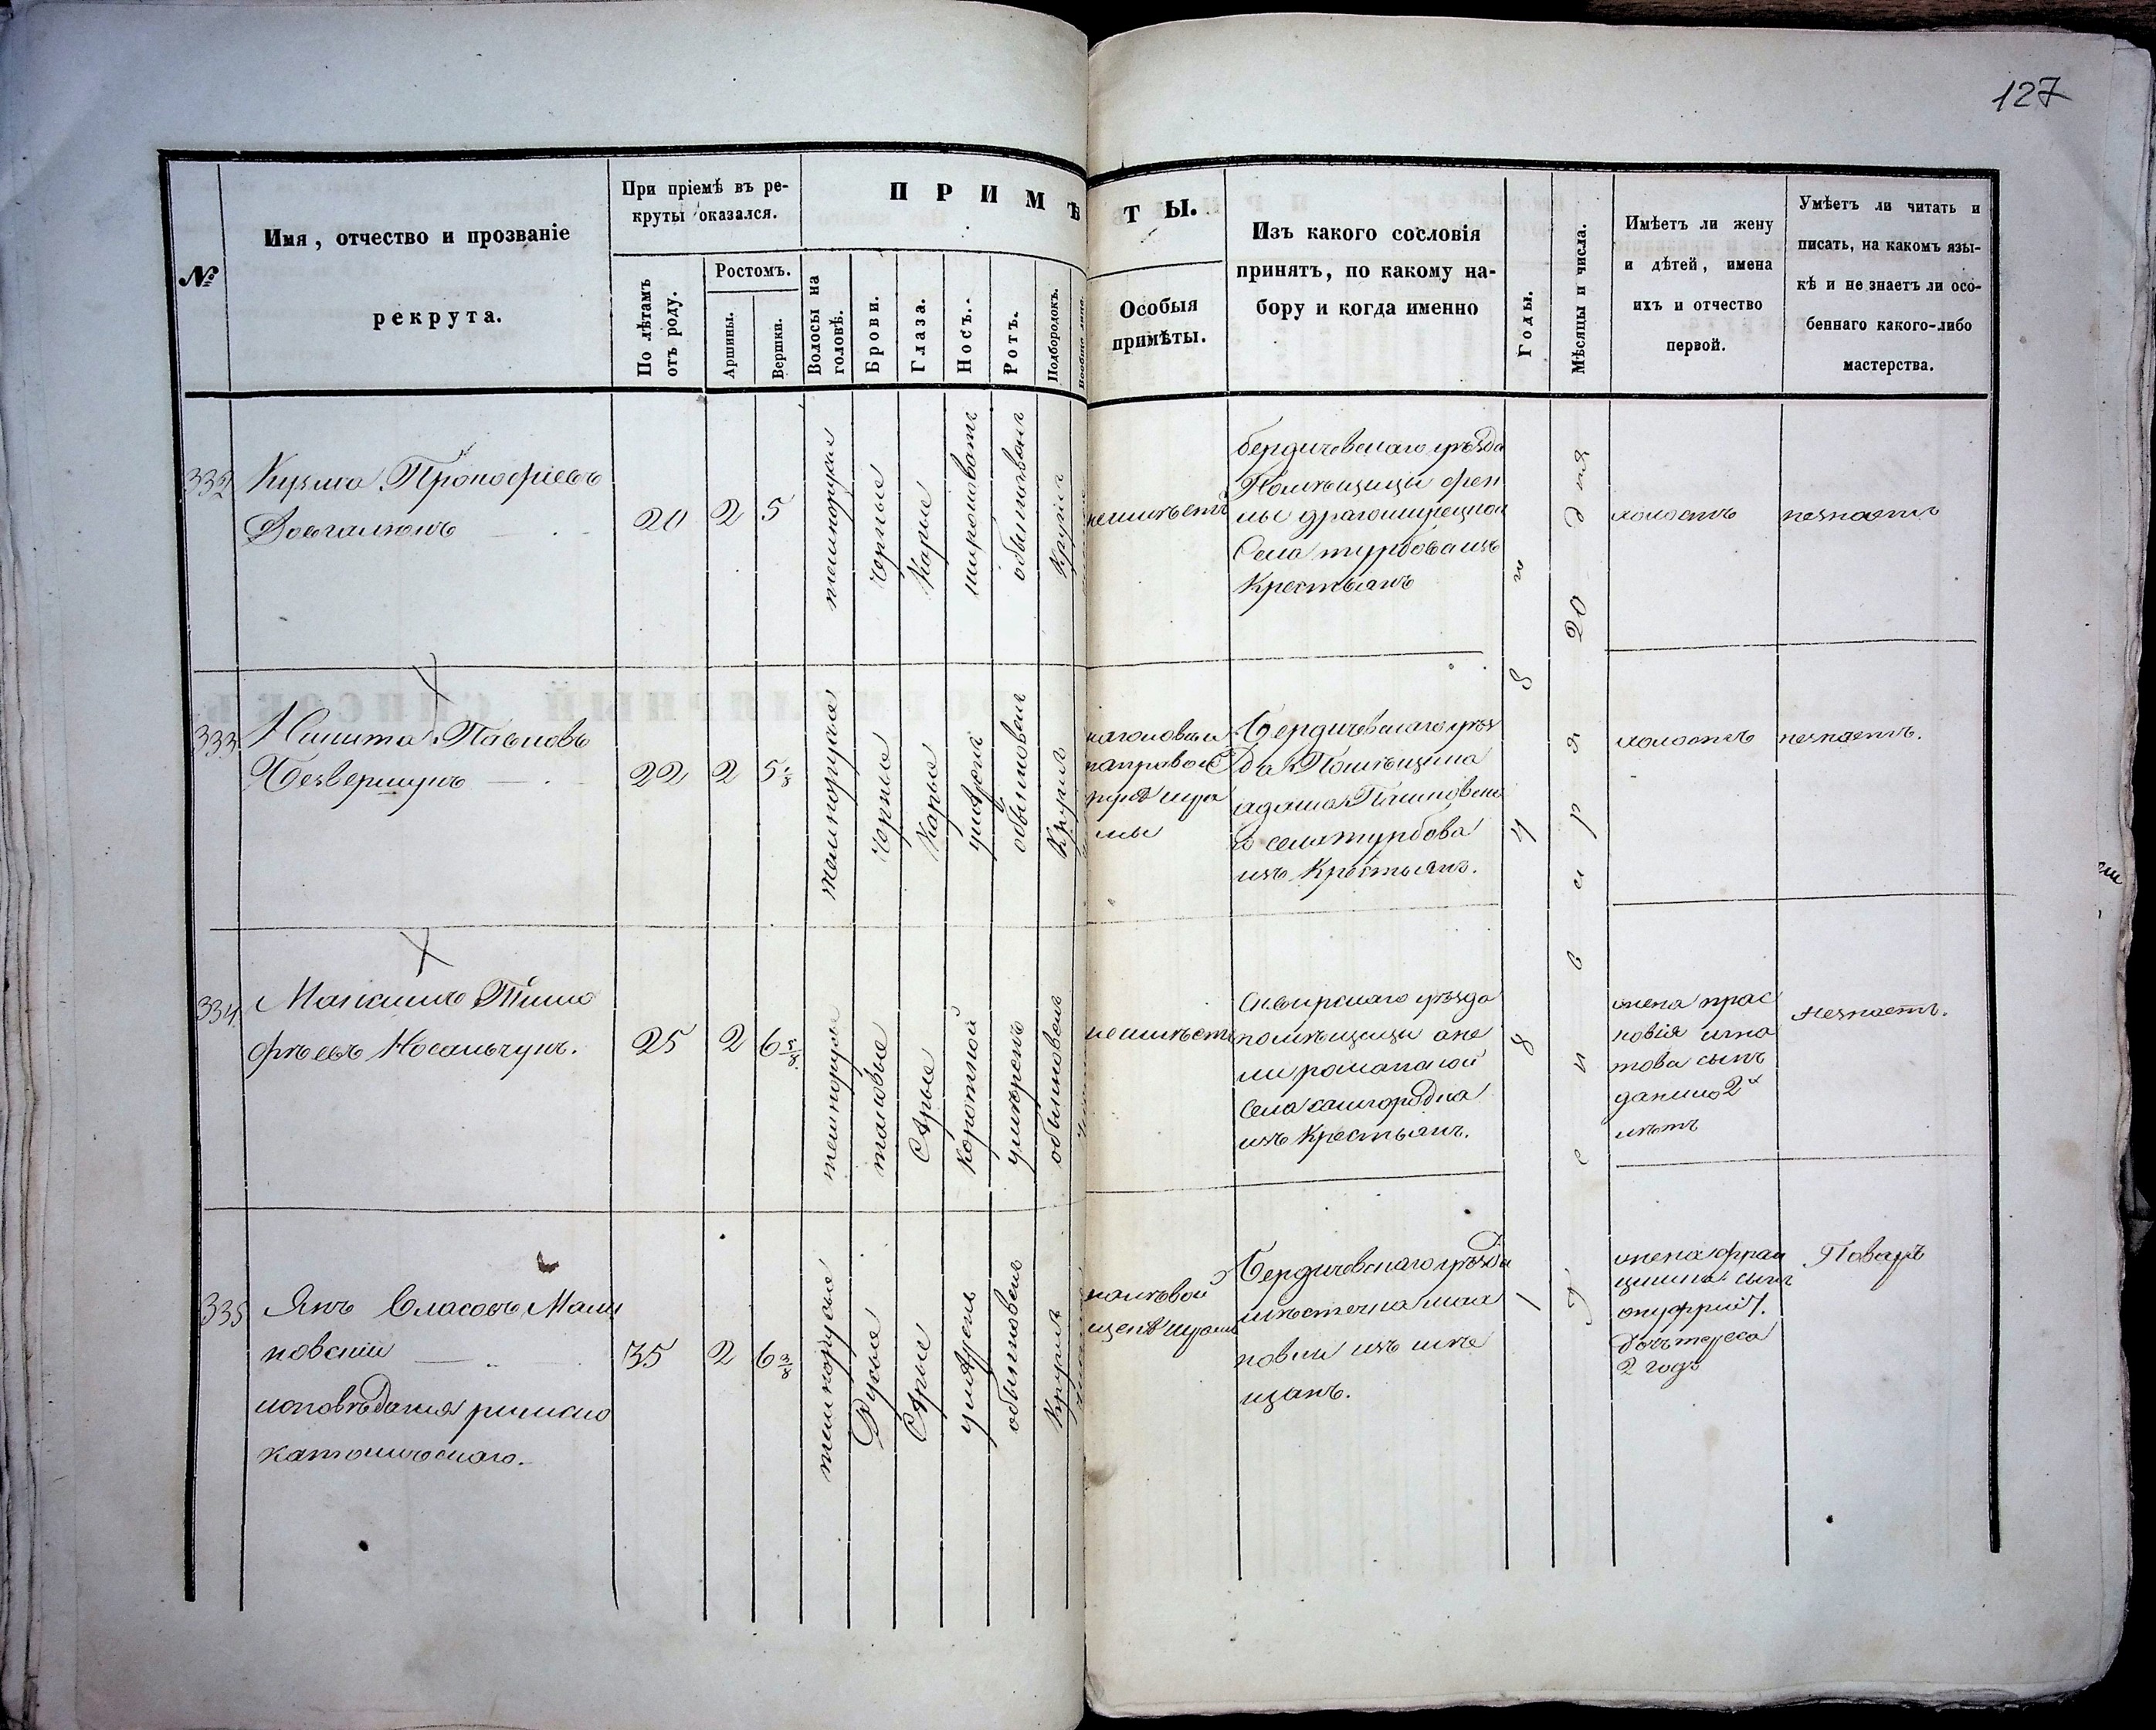 127
№
Имя, отчество и прозваніе
рекрута.
При пріемѣ въ ре-
круты оказался.
По лѣтамъ
отъ роду.
Ростомъ.
Аршины.
Вершки.
ПРИМѢ
Волосы на
головѣ.
Брови.
Глаза.
Носъ.
Ротъ.
Подбородокъ.
Вообще лицо.
ТЫ.
Особыя
примѣты.
Изъ какого сословія
принятъ, по какому на-
бору и когда именно
Годы.
Мѣсяцы и числа.
Имѣетъ ли жену
и дѣтей, имена
ихъ и отчество
первой.
Умѣетъ ли читать и
писать, на какомъ язы-
кѣ и не знаетъ ли осо-
беннаго какого-либо
мастерства.
332
Кузьма Прокофіевъ
Довгалюкъ
20
2
5
темнорусые
черные
Карые
широковатъ
обыкновенъ
Круглъ
неимѣетъ
бердичевскаго уѣзда
Помѣщицы
Села турбова изъ
Крестьянъ
холостъ
незнаетъ
333
Никита Павловъ
Безвершукъ
22
2
5 1/8
Темнорусые
Черные
Карые
умѣренъ
обыкновенъ
Круглъ
наголовѣ и
направой
Бердичевскаго уѣз
да Помѣщика
адама
села турбова
изъ Крестьянъ.
холостъ
незнаетъ.
334
Максимъ Тимо
фѣевъ Носальчукъ.
25
2
6 5/8
темнорусые
таковые
Сѣрые
Короткой
умѣренъ
обыкновенъ
неимѣетъ
Сквирскаго уѣзда
помѣщицы
Села самгородка
изъ Крестьянъ.
жена прас
ковія игна
това сынъ
данило 2х
лѣтъ
незнаетъ.
335
Янъ Власовъ Мали
новскій
исповѣданія римско
католическаго.
35
2
6 3/8
темнорусые
Русые
Сѣрые
умѣренъ
обыкновенъ
Круглъ
налѣвой
щекѣ шрамъ
Бердичевскаго уѣзда
мѣстечка мах
новки изъ мѣ
щанъ.
жена фран
цишка сынъ
онуфрій 7.
Дочь тереса
2 годъ
Поваръ
1 8 4 8 г
генваря 20 дня